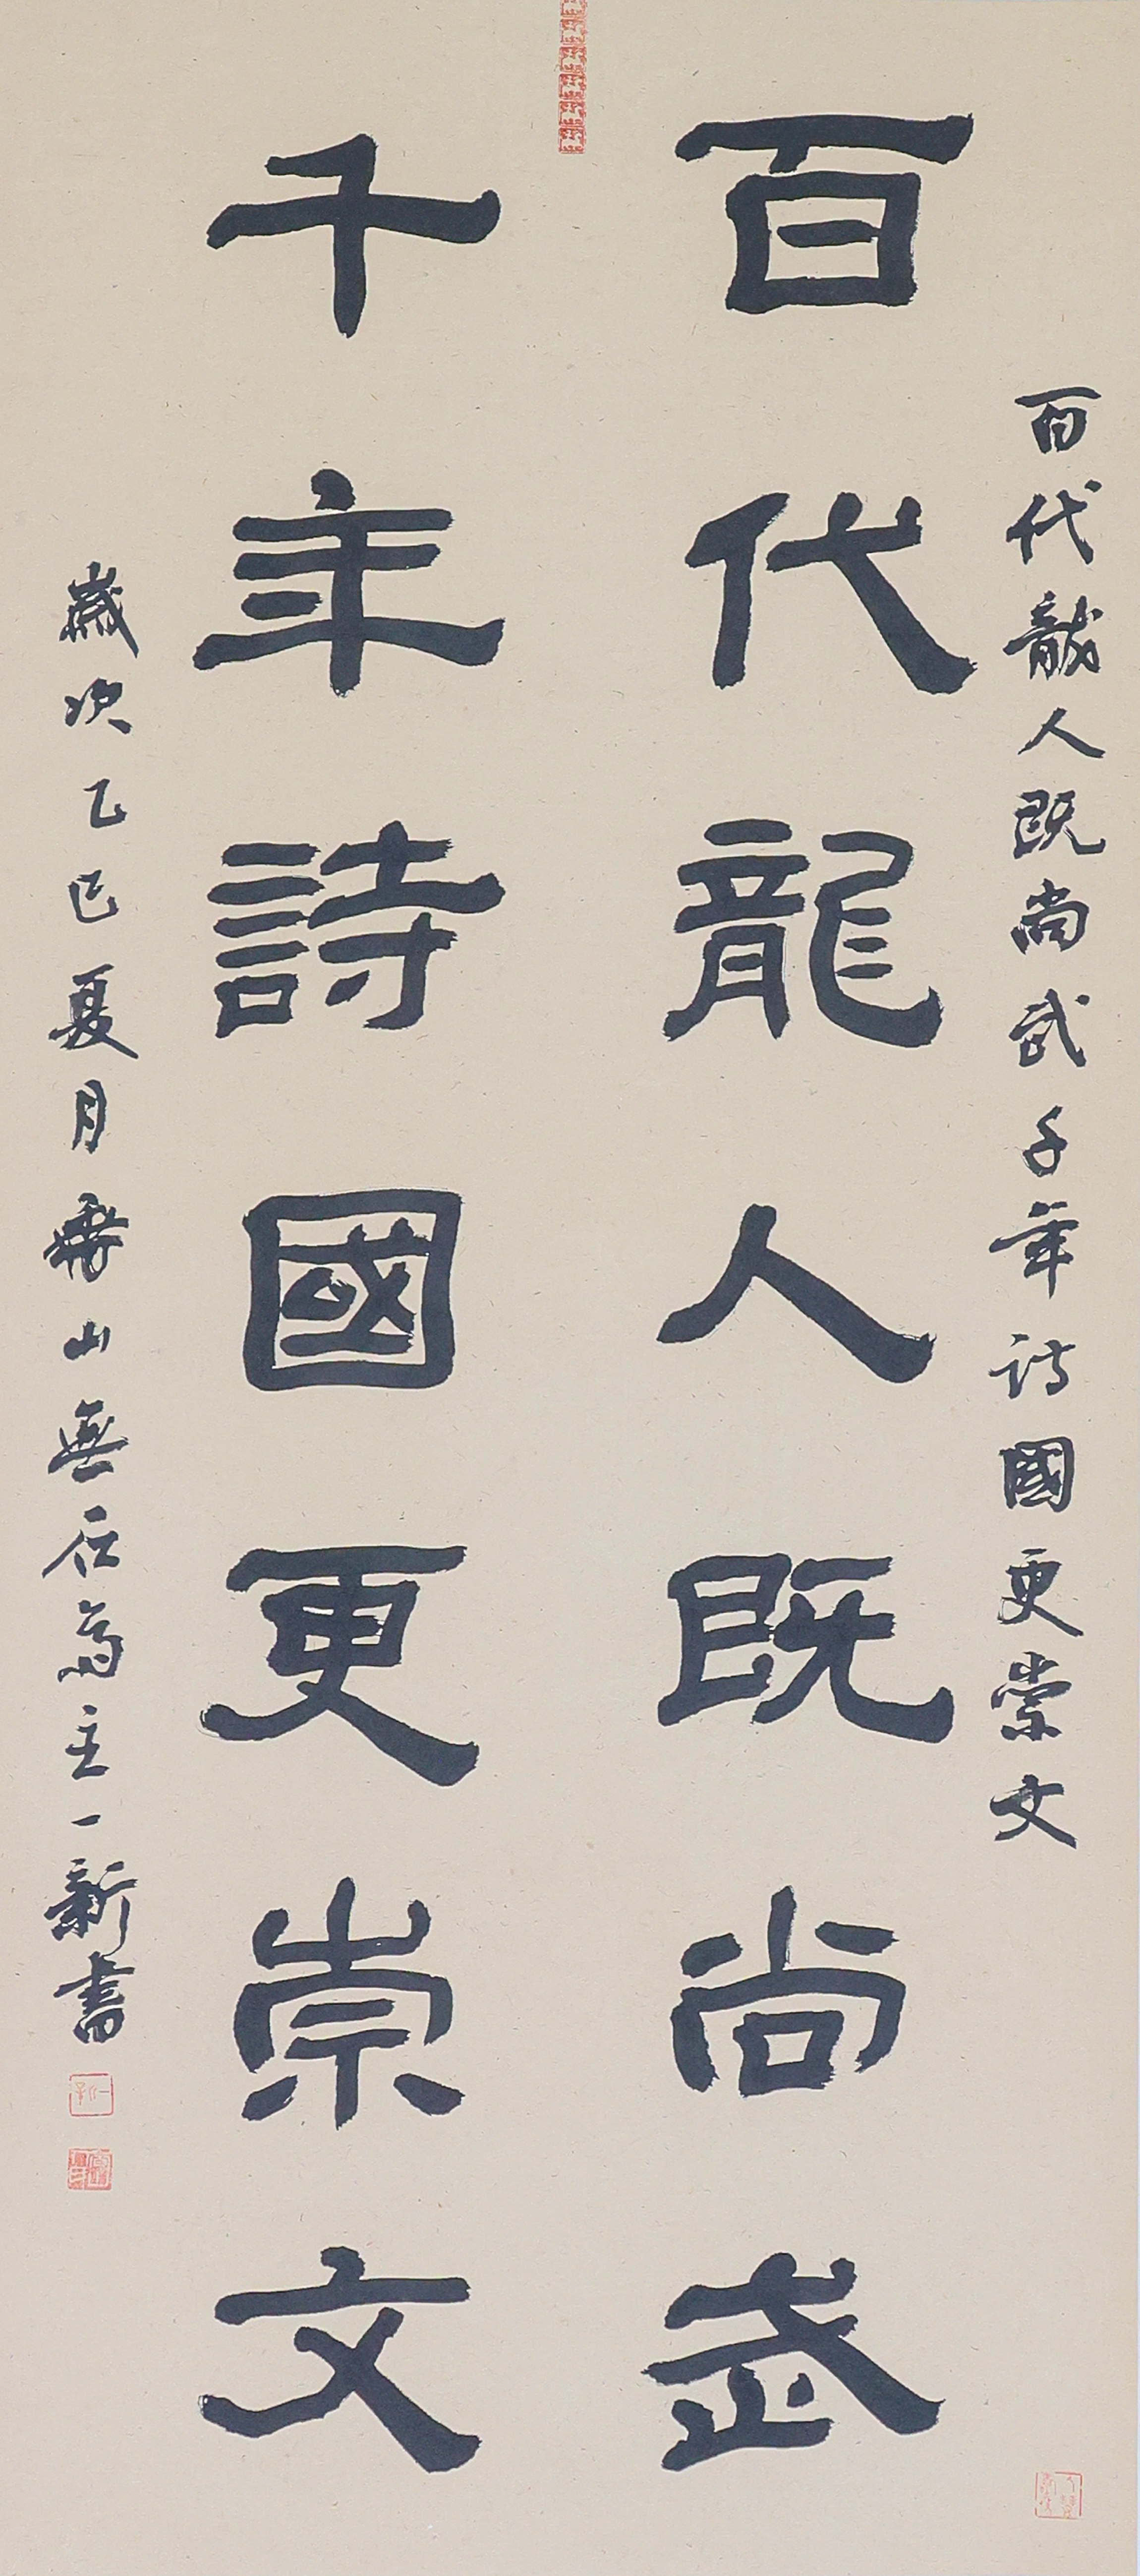 百代龍人既尚武千年诗國更崇文
百代龍人既尚武
千年詩國更崇文
歲次乙巳夏月
山無
齋主一新書